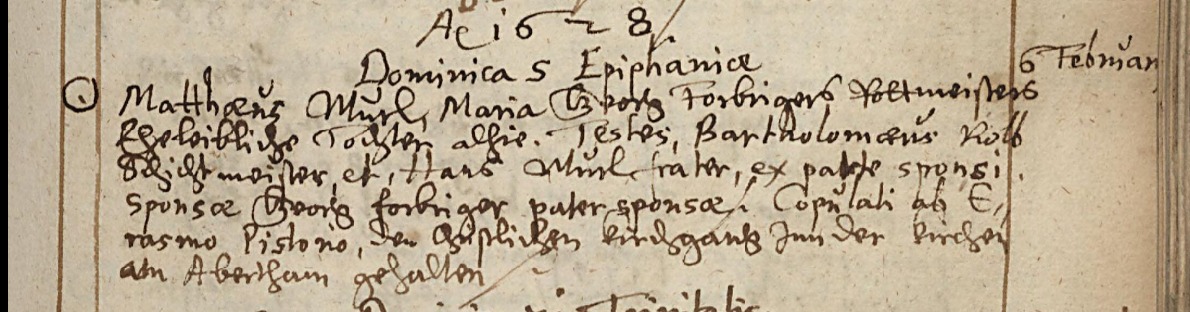 Ao 1628.
Dominica 5 Epiphaniæ
6 Februarii
Matthæus Mürl, Maria Georg Forbrigers Rottmeisters
Eheleibliche Tochter alhie. Testes, Bartholomæus Kolb
Schichtmeister, et, Hans Mürl frater, ex parte sponsi.
Sponsæ Georg forbriger pater sponsæ. Copulati ab E,
rasmo Pistorio, den Christlichen kirchgang Inn der kirchen
am Abertham gehalten
Trinitatis